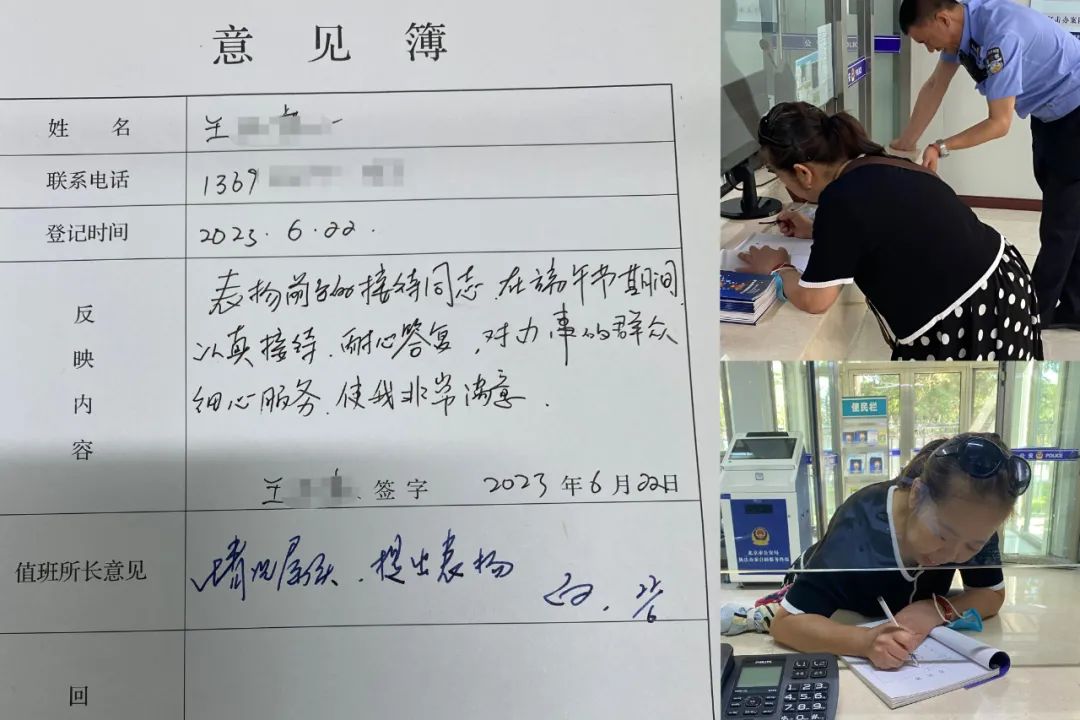 意见簿
姓名 王
联系电话 1369
登记时间 2023.6.22.
反映内容
表扬前台的接待同志,在端午节期间
认真接待,耐心答复,对办事的群众
细心服务,使我非常满意.
王 签字 2023年6月22日
值班所长意见 情况属实,提出表扬
22/6
回
公安 POLICE
便民栏
公安 POLICE
北京市公安局